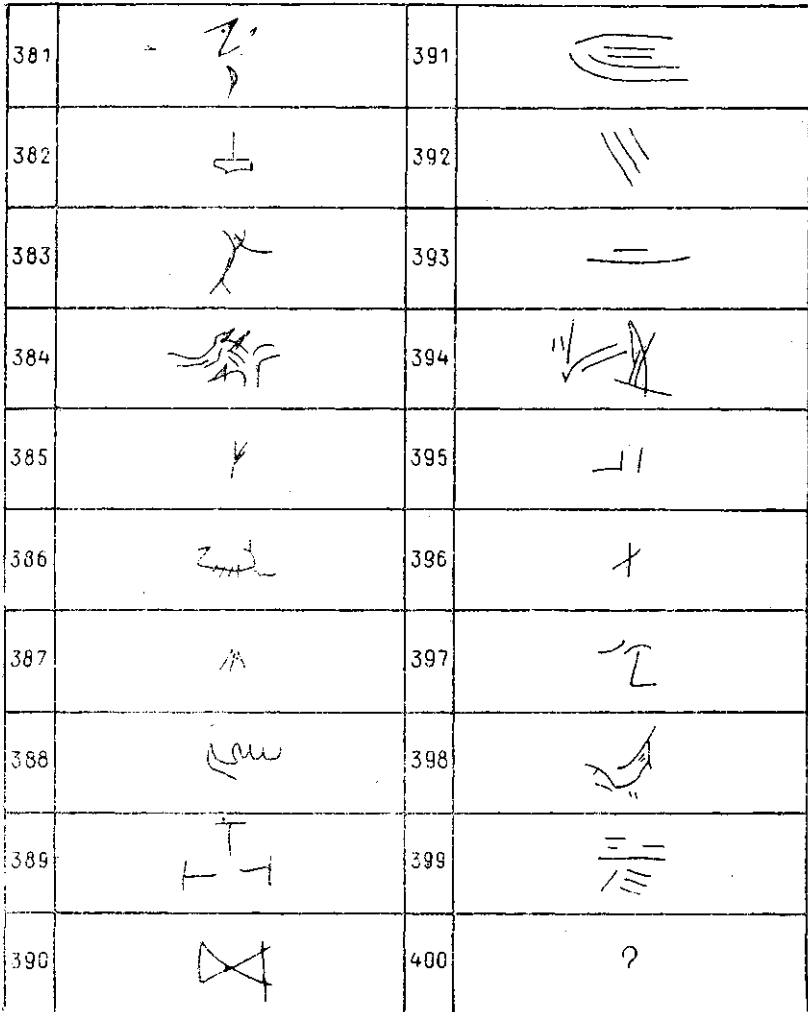 381 391
382 392
383 393
384 394
385 395
386 396
387 397
388 398
389 399
390 400 ?